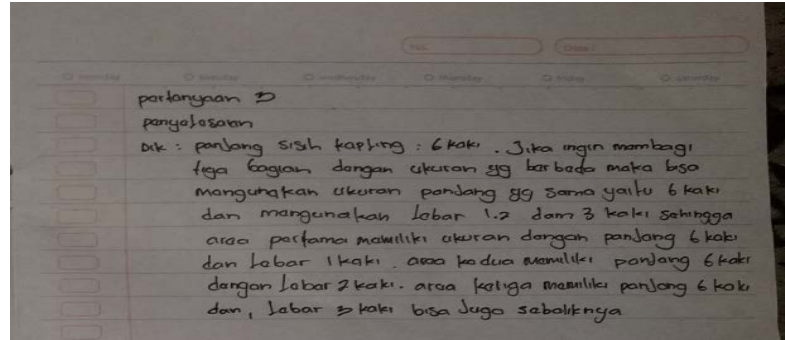 No:
Date:
monday tuesday wednesday thursday friday saturday
partanyaan 3
panyalasaian
Dik : panjang sisih kapling : 6 kaki . Jika ingin mambagi
tiga bagian dangan ukuran yg barbada maka bisa
mangunakan ukuran panjang yg sama yaitu 6 kaki
dan mangunakan Labar 1.2 dam 3 kaki sahingga
araa partama mamiliki ukuran dangan panjang 6 kaki
dan Labar 1 kaki . araa kadua mamiliki panjang 6 kaki
dangan Labar 2 kaki. araa katiga mamiliki panjang 6 kaki
dan, Labar 3 kaki bisa Juga sabaliknya